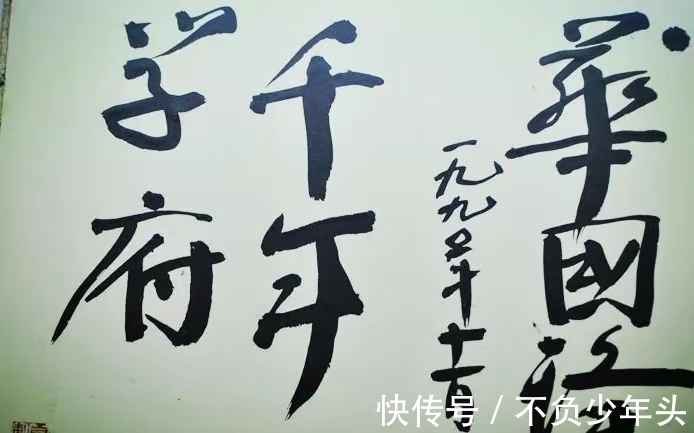 華國
一九九五年十一月
千年
学府
快传号 / 不负少年头